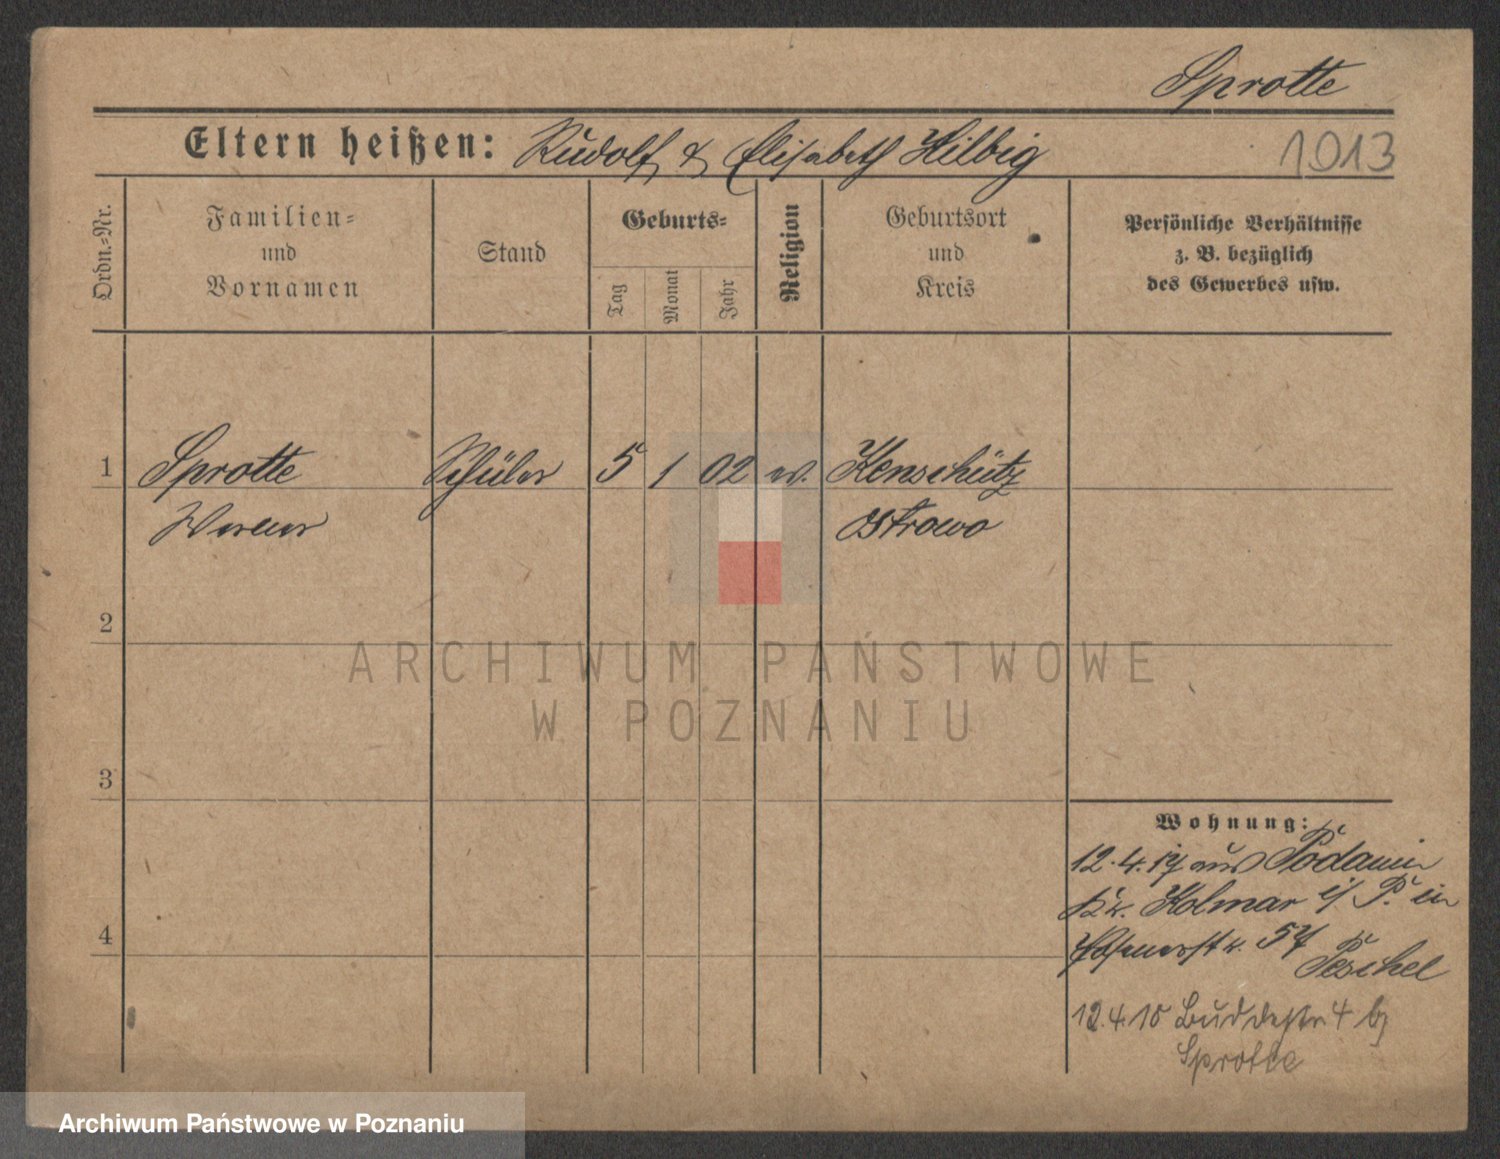 Sprotte
Eltern heißen: Rudolf & Elisabeth Hilbig
1013
Ordn.=Nr.
Familien=
und
Vornamen
Stand
Geburts=
Tag
Monat
Jahr
Religion
Geburtsort
und
Kreis
Persönliche Verhältnisse
z. B. bezüglich
des Gewerbes usw.
1 Sprotte Schüler 5 1 02 ev. Kenschütz
Werner Ostrowo
2
ARCHIWUM PAŃSTWOWE
W POZNANIU
3
Wohnung:
12.4.17 aus Podanin
Kr. Kolmar i/P. in
Posenerstr. 57
Peschel
4
12.4.18 Buddestr 4 b/
Sprotte
Archiwum Państwowe w Poznaniu